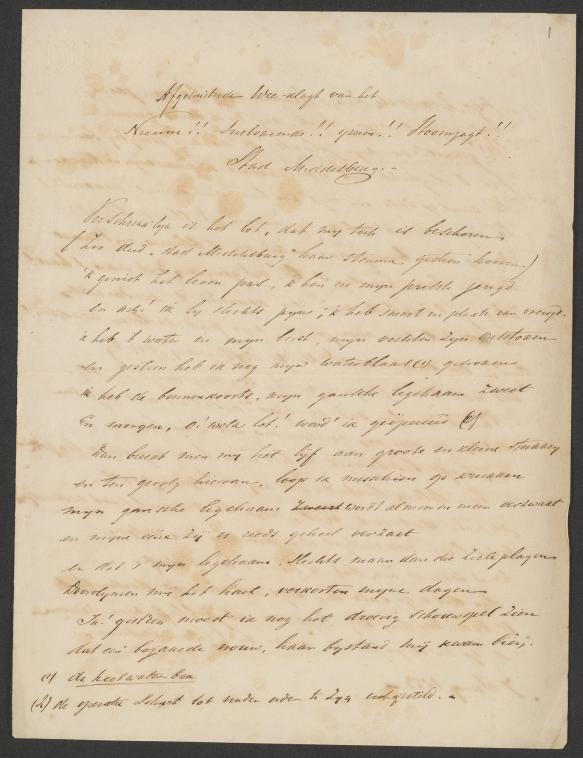 1
Afgeluisterde Wee-klagt van het
Nieuwe!! !! !! Stoomjagt!!
Stad Middelburg.-
Verschrikk'lijk is het lot, dat mij toch is beschoren,
(Zoo deed "Stad Middelburg" haar stemme gist'ren hooren)
'k geniet het leven pas, 'k ben in mijn prilste jeugd
en ach! ik lij slechts pijn; 'k heb smart in plaats van vreugd.
ik heb 't water in mijn borst, mijn vochten zijn
en gist'ren heb ik nog mijn waterblaas (1)
ik heb de binnenkoorts, mijn gansche ligchaam zweet
En morgen, o! welk lot! word' ik geöpereerd (2)
Dan bindt men mij het lijf aan groote en kleine stukken
en ten gevolg hiervan, loop ik misschien op krukken
mijn gansche ligchaam wordt al meer en meer
en mijne eene zij is reeds geheel verzakt
en dat 's mijn ligchaam. Slechts maar dan die zieleplagen
Doorlijmen mij het hart, verkorten mijne dagen
Ja! gist'ren moest ik nog het droevig schouwspel zien
dat een bejaarde vrouw, haar bijstand mij kwam biên.
(1) de heetwater bak
(2) de operatie schijnt tot nader order te zijn uitgesteld.-